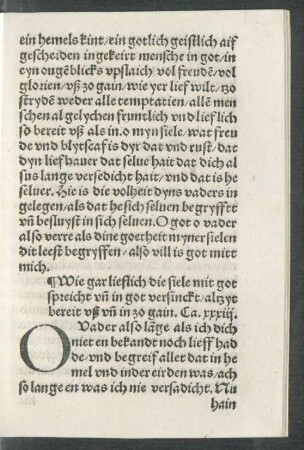 ein hemels kint/ein gotlich geistlich aif
gescheiden ingekeirt mensche in got/in
eyn ougēblicks vpslaich/vol freudē/vol
glorien/vß zo gain/wie yer lief wilt/zo
stryden weder alle temptatien/allē men
schen al gelychen fruntlich vnd lieflich
so bereit vß als in.o myn siele/wat freu
de vnd blytscaf is dyr dat vnd rust/dat
dyn lief hauer dat selue hait dat dich al
sus lange versedicht hait/vnd dat is he
seluer. Hie is die volheit dyns vaders in
gelegen/als dat he sich seluen begryfft
vñ besluyst in sich seluen. O got o vader
also verre als dine goetheit myner sielen
dit leest begryffen/also vill is got mitt
mich.
¶Wie gar lieflich die siele mit got
spreicht vñ in got versinckt/altzyt
bereit vß vñ in zo gain. Ca. xxxiij.
O Vader also lāge als ich dich
niet en bekandt noch lieff had
de/vnd begreif allet dat in he
mel vnd inder eirden was/ach
so lange en was ich nie versadicht. Nu
hain